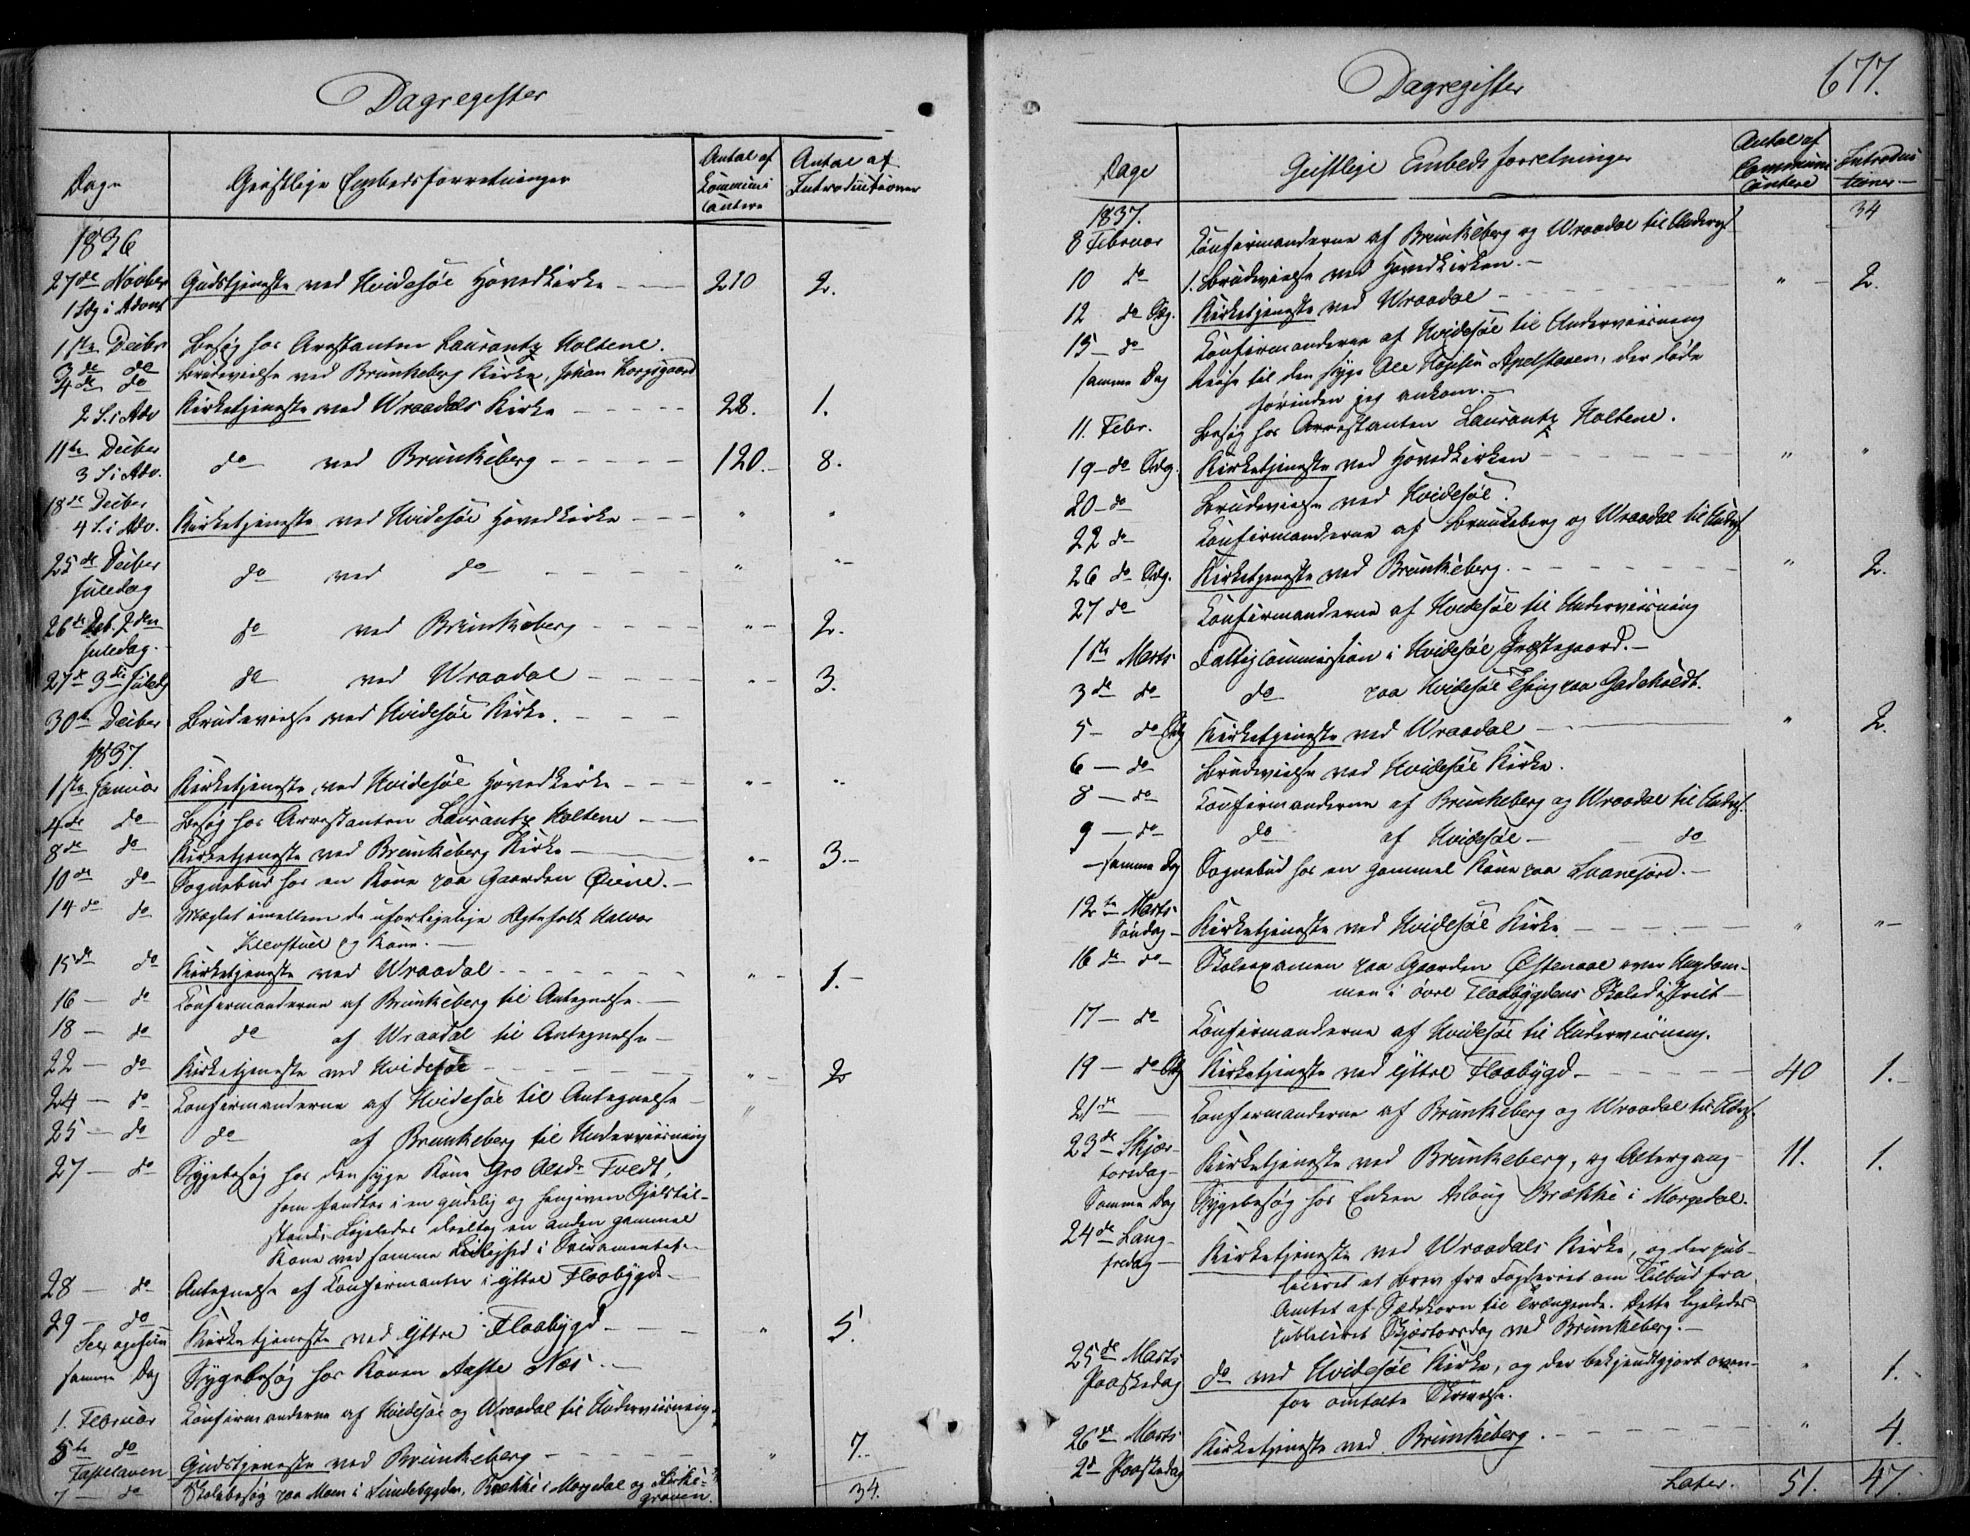 Dagregister
Dage
Geistlige Embedsforretninger
Antal af Communicantere
Antal af Introductioner
1836
27de Novber 1 Sdg i Advent Gudstjeneste ved Hvidesöe Hovedkirke 210 2.
1ste Decbr Besög hos Arrestanten Laurantz Holtene.
3de do Brudevielse ved Brunkeberg Kirke, Johan
4de do 2 S. i Adv Kirketjeneste ved Wraadals Kirke 28. 1.
11te Decber 3 S i Adv. do ved Brunkeberg 120. 8.
18de Decber 4 S. i Adv. Kirketjeneste ved Hvidesöe Hovedkirke " "
25de Decber Juledag do ved do " "
26de Deb. 2den Juledag. do ved Brunkeberg " 2.
27de 3die Juledg do ved Wraadal " 3.
30te Decber Brudevielse ved Hvidesöe Kirke.
1837
1ste Januar Kirketjeneste ved Hvidesöe Hovedkirke " "
4de do Besög hos Arrestanten Laurantz Holtene
8de do Kirketjeneste ved Brunkeberg Kirke " 3.
10de do Sognebud hos en Kone paa Gaarden Öiene.
14de do Mæglet imellem de uforligelige Ægtefolk Halvor
Klevstuel og Kone.
15de do Kirketjeneste ved Wraadal " 1.
16 do Confirmanderne af Brunkeberg til Antegnelse.
18 do do af Wraadal til Antegnelse
22 do Kirketjeneste ved Hvidesöe " 2
24 do Confirmanderne af Hvidesöe til Antegnelse "
25 do do af Brunkeberg til Underviisning
27 do Sygebesög hos den syge Kone Gro Olsdr Tvedt,
som fandtes i en gudelig og hengiven Sjelstil-
stand. Ligeledes deeltog en anden gammel
Kone ved samme Leilighed i Sacramentet.
28 do Antegnelse af Confirmanter i yttre Flaabygd
29 do Sexagesima Kirketjeneste ved yttre Flaabygd " 5.
samme Dag Sygebesög hos Konen Aaste Næs.
1. Februar Confirmanderne af Hvidesöe og Wraadal til Underviisning.
5te do Fastelaven Gudstjeneste ved Brunkeberg " 7.
7 do Skolebesög paa Moen i Sundebygden, Brække i Morgedal og Kirke-
graven.
34.
Dagregister
677.
Dage
Geistlige Embedsforretninger
Antal af Communicantere
Introductioner
1837. 34
8 Februar Confirmanderne af Brunkeberg og Wraadal til Underv
10 do 1. Brudevielse ved Hovedkirken.
12 do Sdg. Kirketjeneste ved Wraadal " 2.
15 do Confirmanderne af Hvidesöe til Underviisning
samme Dag Reise til den syge Ole Apelstaaen, der döde
förinden jeg ankom.
11. Febr. Besög hos Arrestanten Laurantz Holtene.
19 do Sdg. Kirketjeneste ved Hovedkirken " "
20 do Brudevielse ved Hvidesöe.
22 do Confirmanderne af Brunkeberg og Wraadal til Underv
26 do Sdg. Kirketjeneste ved Brunkeberg. " 2.
27 do Confirmanderne af Hvidesöe til Underviisning
1ste Marts Fattigcommission i Hvidesöe Præstegaard.
3de do do paa Hvidesöe Thing paa
5 do Sdg Kirketjeneste ved Wraadal " 2.
6 do Brudevielse ved Hvidesöe Kirke.
8 do Confirmanderne af Brunkeberg og Wraadal til Underv.
9 do do af Hvidesöe do
samme Dag Sognebud hos en gammel Kone paa
12te Marts Söndag Kirketjeneste ved Hvidesöe Kirke " "
16de do Skoleexamen paa Gaarden Östenaae over Ungdom-
men i övre Flaabygdens Skoledistrict
17 do Confirmanderne af Hvidesöe til Underviisning.
19 do Sdg Kirketjeneste ved yttre Flaabygd. 40 1.
21de Confirmanderne af Brunkeberg og Wraadal til Underv.
23de Skjær-
torsdag Kirketjeneste ved Brunkeberg, og Altergang 11. 1.
Samme Dag Sygebesög hos Enken Aslaug Brække i Morgedal.
24de Lang-
fredag Kirketjeneste ved Wraadals Kirke, og der pub-
liceret et Brev fra Fogderiet om Tilbud fra
Amtet af Sædekorn til Trængende. Dette ligeledes
publiceret Skjærtorsdag ved Brunkeberg.
25de Marts Paaskedag do ved Hvidesöe Kirke, og der bekjendtgjort oven- " 1.
for omtalte Skrivelse.
26de Marts 2d Paaskedag Kirketjeneste ved Brunkeberg. " 4.
Later. 51. 47.